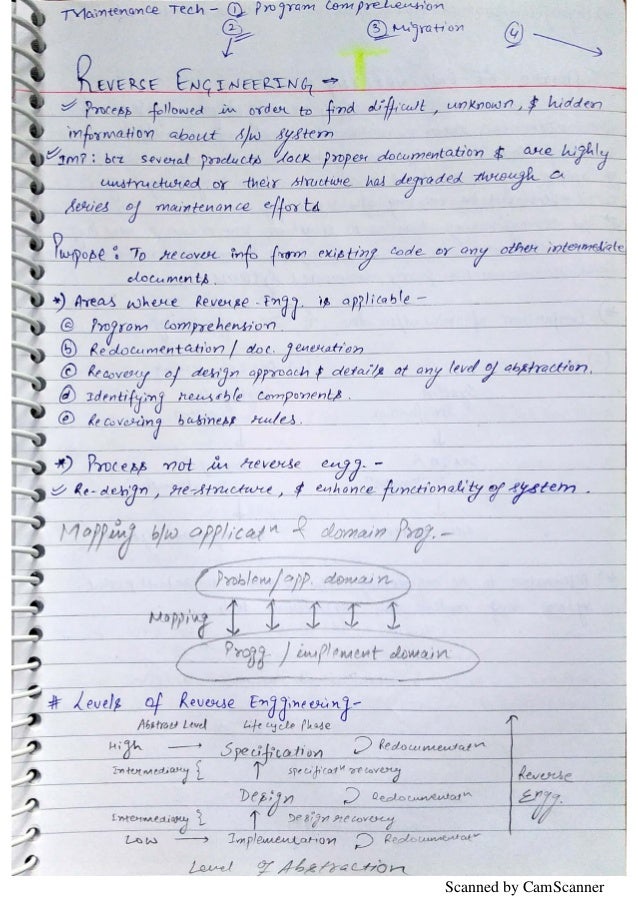 Maintenance Tech - ① Program Comprehension
② ③ Migration ④
REVERSE ENGINEERING → T
Process followed in order to find difficult, unknown, & hidden
information about s/w system
IMP: bcz several products lack proper documentation & are highly
unstructured or their structure has degraded through a
series of maintenance efforts
Purpose: To recover info from existing code or any other intermediate
documents.
*) Areas where Reverse-Engg. is applicable -
ⓐ Program comprehension.
ⓑ Redocumentation / doc. generation
ⓒ Recovery of design approach & details at any level of abstraction.
ⓓ Identifying reusable components.
ⓔ Recovering business rules.
*) Process not in reverse engg. -
Re-design, re-structure, & enhance functionality of system.
Mapping b/w applicatn & domain Prog. -
Problem/app. domain
Mapping
Progg / implement domain
# Levels of Reverse Enggineering -
Abstract Level Lifecycle Phase
High → Specification Redocumentatn
Intermediary { ↑ specificatn recovery
Design Redocumentatn
Intermediary { ↑ Design recovery
Low → Implementation Redocumentatn
Reverse
Engg.
Level of Abstraction
Scanned by CamScanner